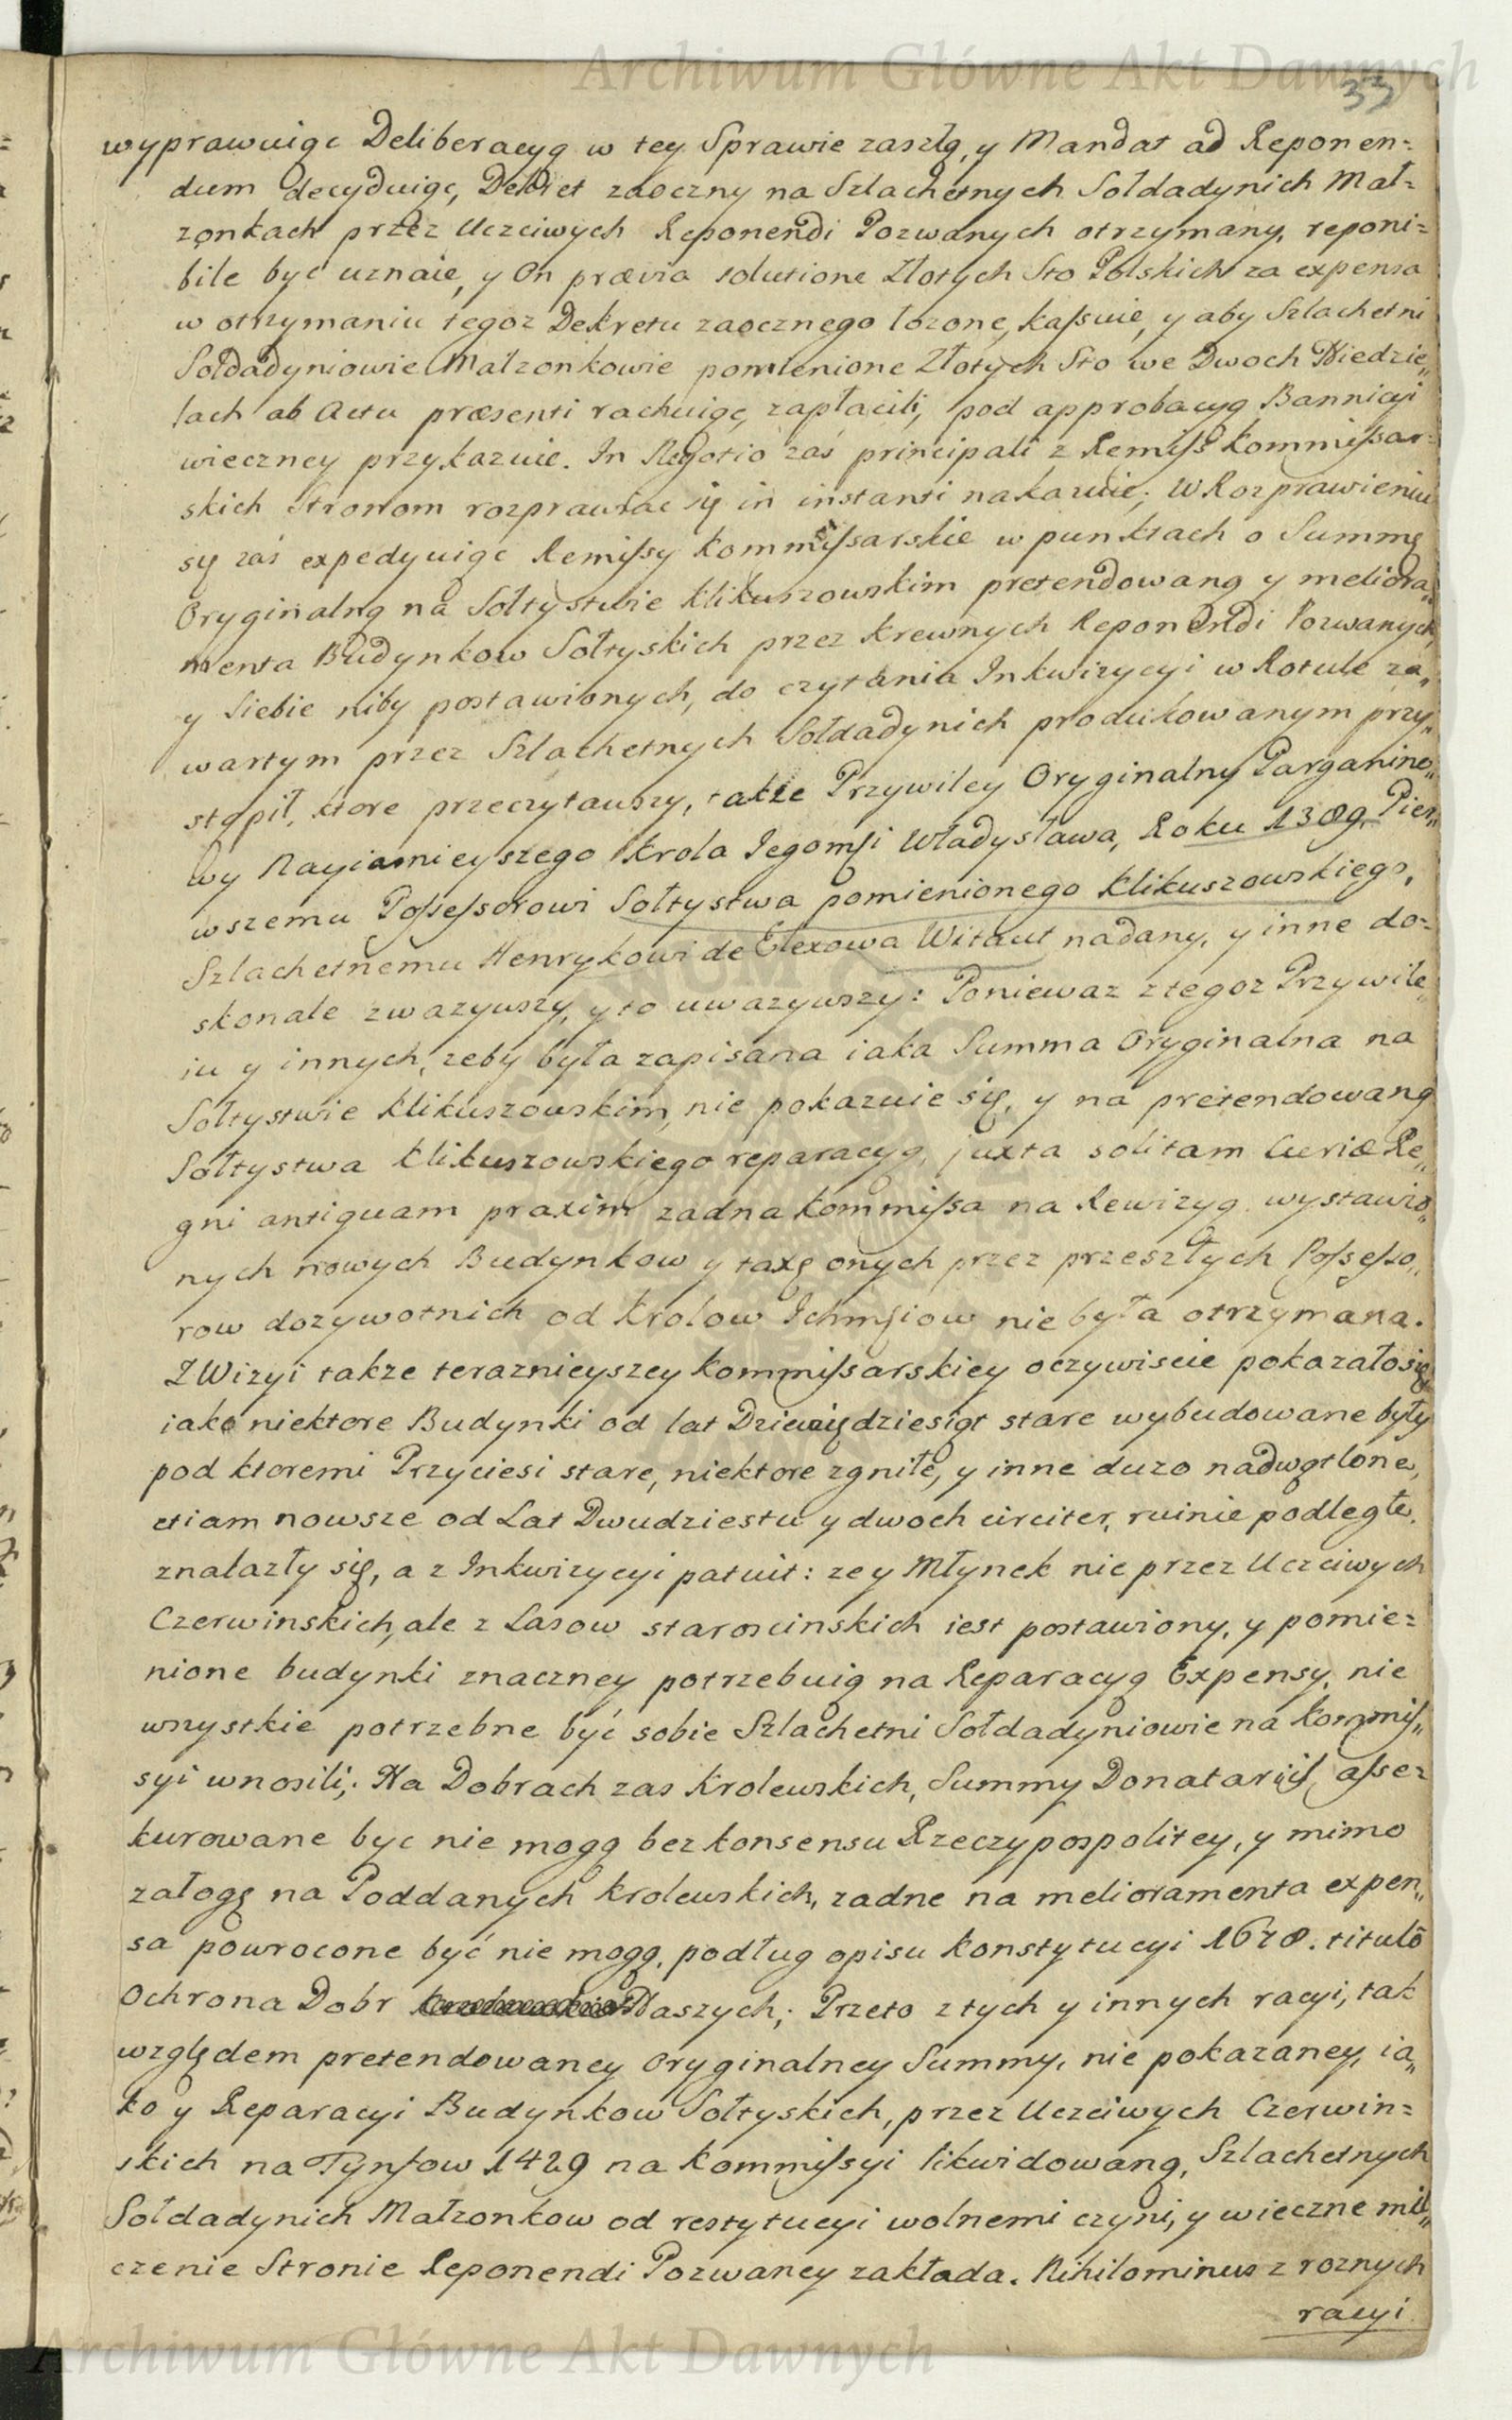 Archiwum Główne Akt Dawnych
33
wyprawuiąc Deliberacyą w tey Sprawie zaszłą, y Mandat ad Reponen=
dum decyduiąc, Dekret zaoczny na Szlachetnych Sołdadynich Mał=
zonkach przez Uczciwych Reponendi Pozwanych otrzymany, reponi=
bile być uznaie, y On prævia solutione Złotych Sto Polskich za expensa
w otrzymaniu tegoz Dekretu zaocznego łozone, kaſsuie, y aby Szlachetni
Sołdadyniowie Małzonkowie pomienione Złotych Sto we Dwoch Niedzie„
lach ab Actu præsenti rachuiąc, zapłacili, pod approbacyą Bannicyi
wieczney przykazuie. In Negotio zaś principali z Remiſs Kommiſsar=
skich Stronom rozprawiac się in instanti nakazuie; W Rozprawieniu
się zaś expedyuiąc Remiſsy Kommiſsarskie w punktach o Summę
Oryginalną na Sołtystwie Klikuszowskim pretendowaną y meliora„
menta Budynkow Sołtyskich przez Krewnych Reponendi Pozwanych,
y Siebie niby postawionych, do czytania Inkwizycyi w Rotule za„
wartym przez Szlachetnych Sołdadynich produkowanym przy„
stąpił, ktore przeczytawszy, takze Przywiley Oryginalny Pargamino„
wy Nayiasnieyszego Krola Jegomſi Władysława, Roku 1389. Pier„
wszemu Poſseſsorowi Sołtystwa pomienionego Klikuszowskiego,
Szlachetnemu Henrykowi de Elexowa Witaut nadany, y inne do=
skonale zwazywszy, y to uwazywszy: Poniewaz z tegoz Przywile„
iu y innych, zeby była zapisana iaka Summa Oryginalna na
Sołtystwie Klikuszowskim, nie pokazuie się, y na pretendowaną
Sołtystwa Klikuszowskiego reparacyą, juxta solitam Curiæ Re„
gni antiquam praxim zadna Kommiſsa na Rewizyą wystawio„
nych nowych Budynkow y taxę onych przez przeszłych Poſseſso„
row dozywotnich od Krolow Ichmſiow nie była otrzymana.
Z Wizyi takze teraznieyszey Kommiſsarskiey oczywiscie pokazało się,
iako niektore Budynki od lat Dziewiędziesiąt stare wybudowane były
pod ktoremi Przyciesi stare, niektore zgniłe, y inne duzo nadwątlone,
etiam nowsze od Lat Dwudziestu y dwoch circiter, ruinie podległe,
znalazły się, a z Inkwizycyi patuit: ze y Młynek nie przez Uczciwych
Czerwinskich, ale z Lasow staroscinskich iest postawiony, y pomie=
nione budynki znaczney potrzebuią na Reparacyą Expensy, nie
wszystkie potrzebne być sobie Szlachetni Sołdadyniowie na Kommiſ„
syi wnosili; Na Dobrach zas Krolewskich, Summy Donatariis aſse=
kurowane byc nie mogą bez konsensu Rzeczypospolitey, y mimo
załogę na Poddanych Krolewskich, zadne na melioramenta expen„
sa powrocone być nie mogą, podług opisu Konstytucyi 1678. titulo
Ochrona Dobr Naszych; Przeto z tych y innych racyi, tak
względem pretendowaney Oryginalney Summy, nie pokazaney, ia„
ko y Reparacyi Budynkow Sołtyskich, przez Uczciwych Czerwin=
skich na Tynfow 1429 na Kommiſsyi likwidowaną, Szlachetnych
Sołdadynich Małzonkow od restytucyi wolnemi czyni, y wieczne mil„
czenie Stronie Reponendi Pozwaney zakłada. Nihilominus z roznych
racyi
Archiwum Główne Akt Dawnych